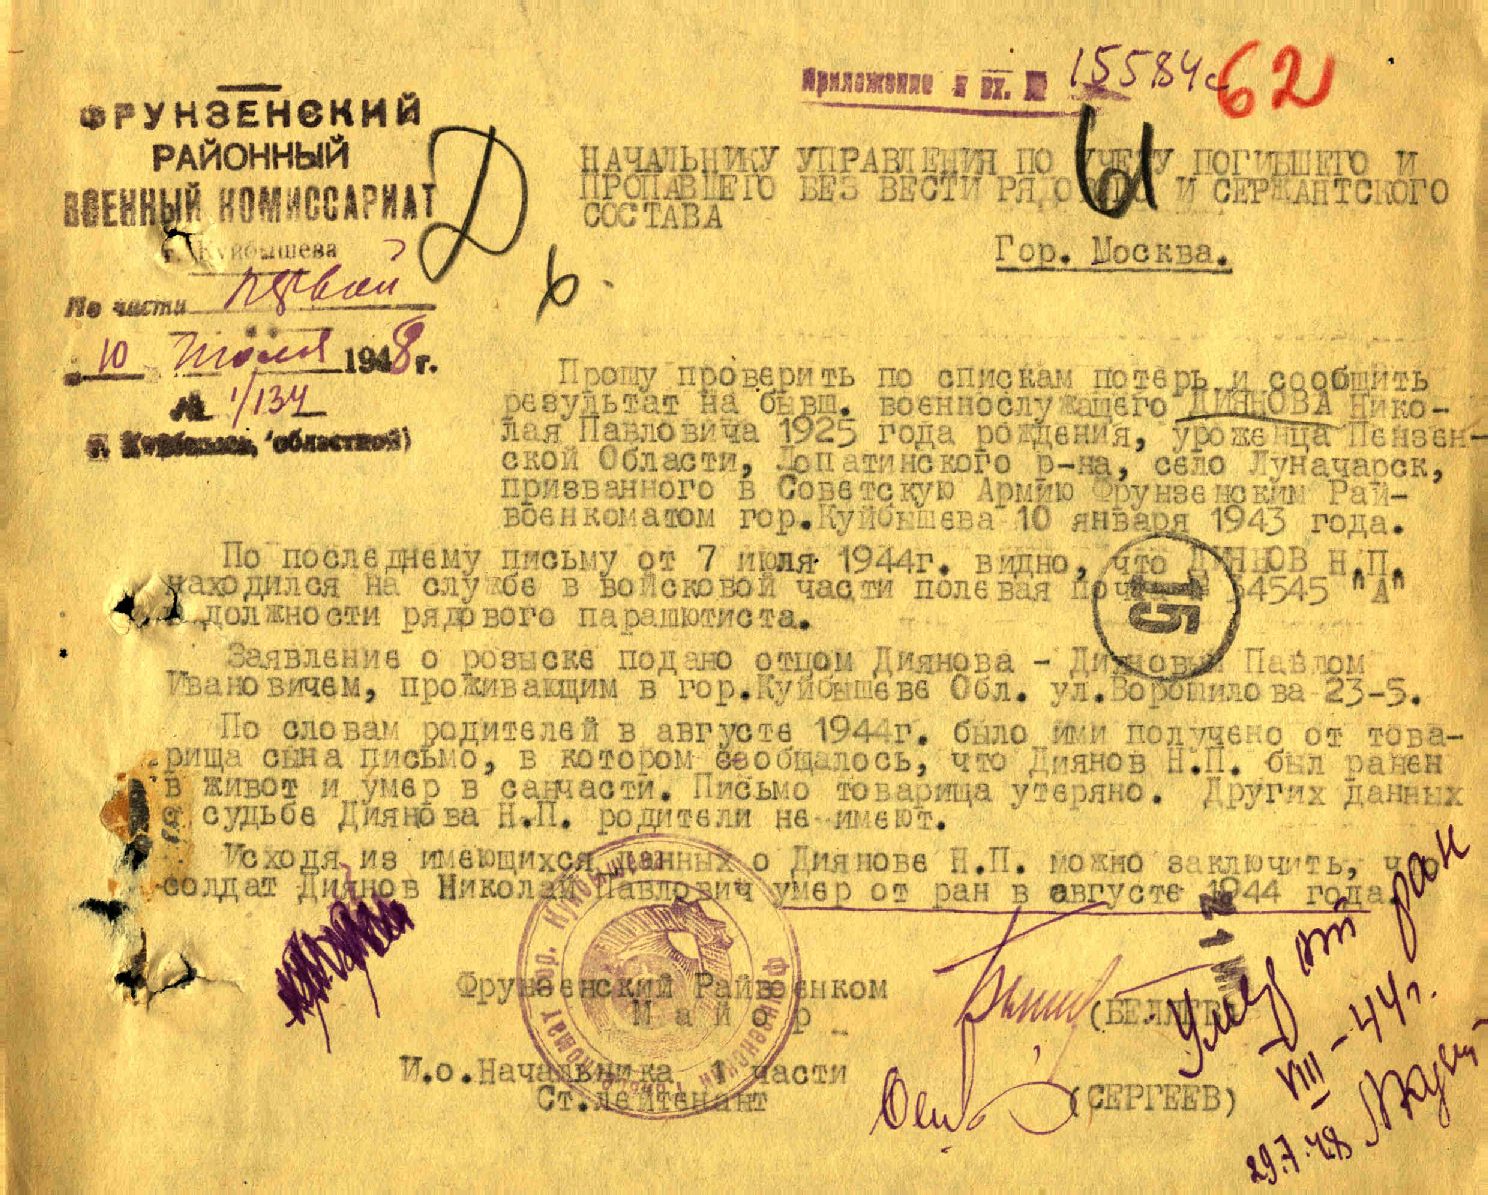 Приложение к вх. № 15584с 62
ФРУНЗЕНСКИЙ
РАЙОННЫЙ
ВОЕННЫЙ КОМИССАРИАТ
г. Куйбышева
По части первой
10 июля 1948 г.
№ 1/134
г. Куйбышев, областной)
Д
61
НАЧАЛЬНИКУ УПРАВЛЕНИЯ ПО УЧЕТУ ПОГИБШЕГО И
ПРОПАВШЕГО БЕЗ ВЕСТИ РЯДОВОГО И СЕРЖАНТСКОГО
СОСТАВА
Гор. Москва.
Прошу проверить по спискам потерь и сообщить
результат на бывш. военнослужащего ДИЯНОВА Нико-
лая Павловича 1925 года рождения, уроженца Пензен-
ской Области, Лопатинского р-на, село Луначарск,
призванного в Советскую Армию Фрунзенским Рай-
военкоматом гор.Куйбышева 10 января 1943 года.
По последнему письму от 7 июля 1944г. видно, что ДИЯНОВ Н.П.
находился на службе в войсковой части полевая почта 54545 "А"
в должности рядового парашютиста.
15
Заявление о розыске подано отцом Диянова - Дияновым Павлом
Ивановичем, проживающим в гор.Куйбышеве Обл. ул.Ворошилова 23-5.
По словам родителей в августе 1944г. было ими получено от това-
рища сына письмо, в котором сообщалось, что Диянов Н.П. был ранен
в живот и умер в санчасти. Письмо товарища утеряно. Других данных
о судьбе Диянова Н.П. родители не имеют.
Исходя из имеющихся данных о Диянове Н.П. можно заключить, что
солдат Диянов Николай Павлович умер от ран в августе 1944 года.
Фрунзенский Райвоенком
Майор (БЕЛЯЕВ)
И.о.Начальника 1 части
Ст.лейтенант (СЕРГЕЕВ)
Умер от ран
VIII-44г.
29.7.48